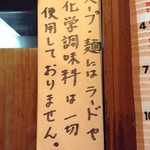 スープ・麺にはラードや
化学調味料は一切
使用しておりません。
4